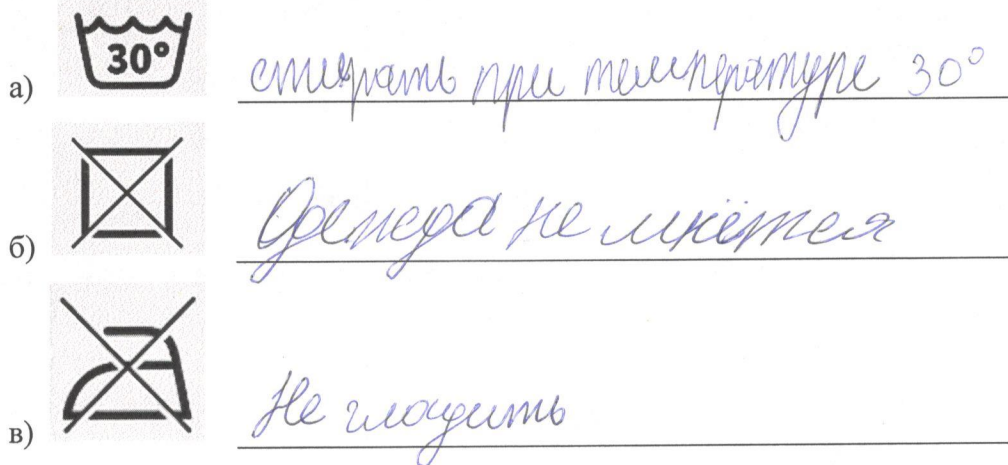 а) 30° стирать при температуре 30°
б) Одежда не мнётся
в) Не гладить